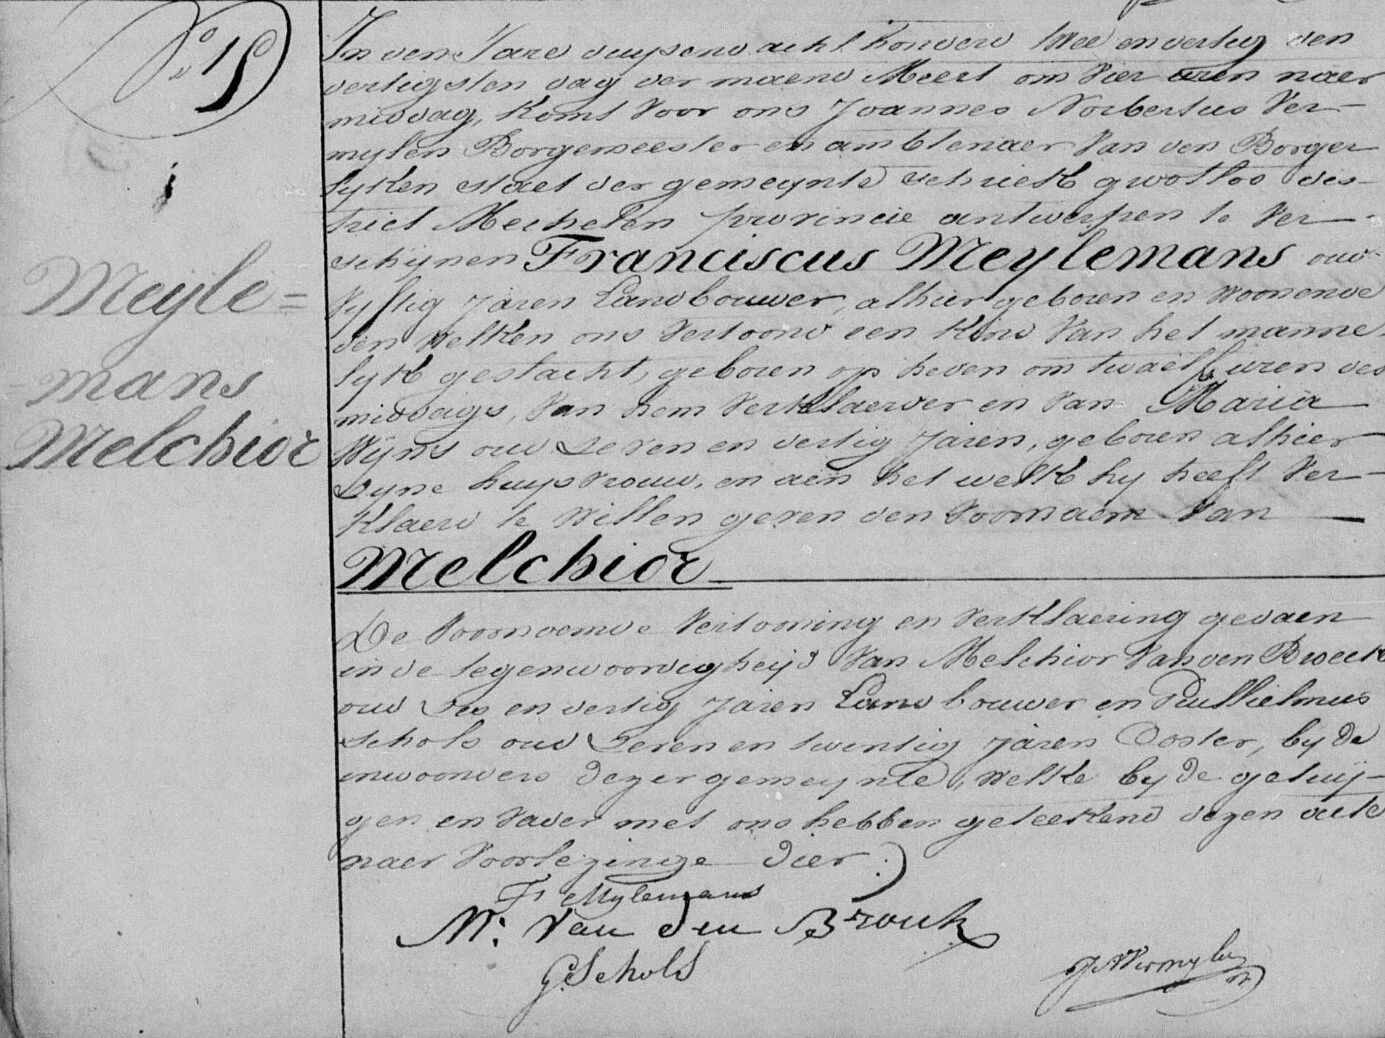 N° 15
Meyle=
=mans
Melchior
In den Jare duysend acht honderd twee en vertig den
dertigsten dag der maend Meert om vier uren naer
middag, komt voor ons Joannes Norbertus Ver-
mylen Borgemeester en ambtenaer van den Borger
lyken staet der gemeynte Schriek grootloo des-
trict Mechelen provincie antwerpen te ver-
schynen Franciscus Meylemans oud
vyftig jaren Landbouwer, alhier geboren en woonende
den welken ons vertoond een kind van het manne-
lyk geslacht, geboren op heden om twaelf uren des
middags, van hem verklaerder en van Maria
Wyns oud seven en dertig jaren, geboren alhier
syne huysvrouw, en aen het welk hy heeft ver-
klaerd te willen geven den voornaem van
Melchior
De voornoemde vertooning en verklaering gedaen
in de tegenwoordigheyd van Melchior Van den Broeck
oud ses en vertig jaren Landbouwer en Guillielmus
Schols oud seven en twentig jaren Coster, by de
inwoonders dezer gemeynte, welke by de getuy-
gen en vader met ons hebben geteekend dezen acte
naer voorlezinge dier.
Fs Mylemans
M: Van den Brouck
G: Schols
JNVermylen